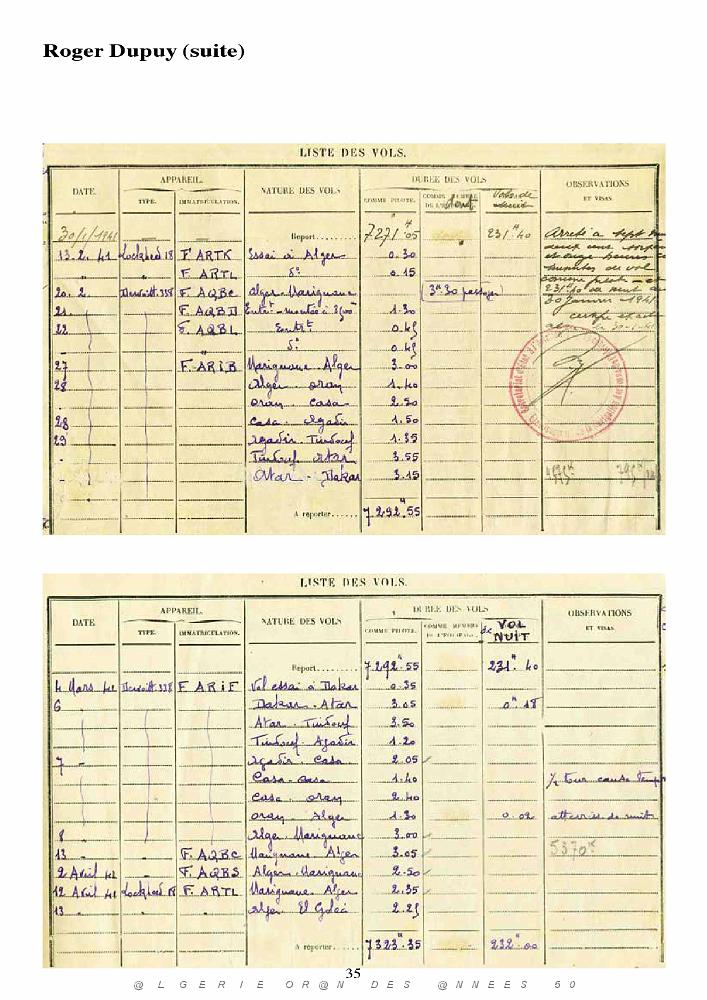 Roger Dupuy (suite)
LISTE DES VOLS.
DATE. APPAREIL. NATURE DES VOLS DURÉE DES VOLS OBSERVATIONS ET VISAS.
TYPE. IMMATRICULATION. COMME PILOTE. COMME MEMBRE DE L'ÉQUIPAGE
30/1/1941 Report........ 7271 H 05 231 H 40
13.2.41 Lockheed 18 F. ARTK Essai à Alger 0.30
" " F. ARTL d° 0.15
20. 2. Dewoitt.338 F. AQBC Alger. Marignane (3H 30 passager)
21. F. AQBD 1.30
22 F. AQBL Entrt 0.45
- " d° 0.45
27 F. ARIB Marignane. Alger 3.00
28 Alger. Oran 1.40
. Oran Casa 2.50
28 Casa. Agadir 1.50
29 Agadir. Tindouf 1.35
- Tindouf Atar 3.55
- Atar. Dakar 3.15
A reporter...... 7292 H 55
Arrêté à sept
30 Janvier 1941
LISTE DES VOLS.
DATE APPAREIL. NATURE DES VOLS DURÉE DES VOLS OBSERVATIONS ET VISAS.
TYPE. IMMATRICULATION. COMME PILOTE. COMME MEMBRE DE L'ÉQUIPAGE de VOL NUIT
Report........ 7292 H 55 231 H 40
4 Mars 41 Dewoitt.338 F. ARIF Vol essai à Dakar 0.35
6 . Dakar. Atar 3.05 0 H 18
Atar. Tindouf 3.50
Tindouf. Agadir 1.20
7 - Agadir. Casa 2.05
Casa. Casa 1.40 ½ tour cause temps
Casa. Oran 2.40
Oran. Alger 1.30 0.02 atterris de nuit
8 Alger. Marignane 3.00
13 - F. AQBC Marignane. Alger 3.05 5370 H
2 Avril 41 F. AQBS Alger. Marignane 2.50
12 Avril 41 Lockheed 18 F. ARTL Marignane. Alger 2.35
13 . Alger El Goléa 2.25
A reporter...... 7323 H 35 232 H 00
35
@ L G E R I E O R @ N D E S @ N N E E S 5 0